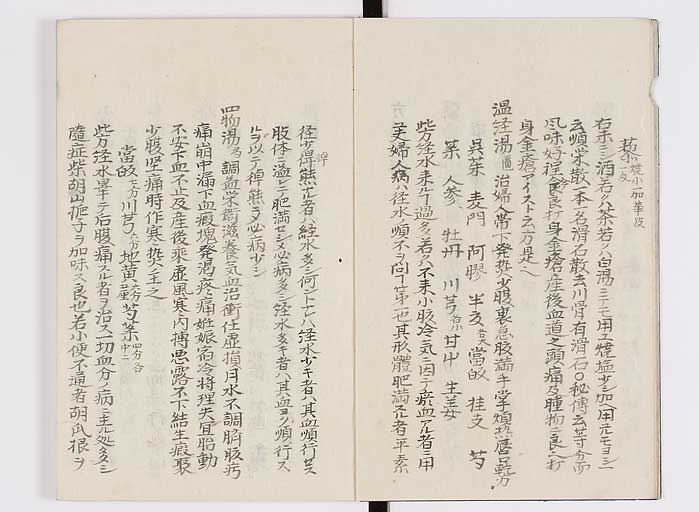 右末シ酒若クハ茶若クハ白湯ニテモ用ユ焼塩少シ加ヘ用ルモヨシ
云順栄散一本名滑石散去川骨有滑石〇秘傳云等分而
風味好程食良打身金瘡産後血道之頭痛及腫物ニ良打
身金瘡アイストヲ云方是ヘ
温経湯 治婦人帯下発熱少腹裏急腹満手掌煩熱唇口乾方
呉茱 麦門 阿膠 半夏 各大 當皈 桂支 芍
薬 人參 牡丹 川芎 各小 甘中 生姜
此方経水来ルヿ過多若クハ不来小腹冷氣ニ因テ瘀血アル者ニ用
ユ夫婦人病ハ経水順不ヲ問フ第一也其形體肥満スル者平素
径少ク 経水多シ何トナレハ経水少キ者ハ其血順行セス
肢体ニ溢レテ肥満セシメ必病多シ経水多キ者ハ其血ヨク順行ス
ルヲ以テ 必病少シ
四物湯 調益栄衛滋養氣血治衝任虚損月水不調臍腹㽲
痛崩中漏下血瘕塊発渇疼痛妊娠宿冷将理失宜胎動
不安下血不止及産後乗虚風寒内搏悪露不下結生瘕聚
少腹堅痛時作寒熱ヲ主之
當皈 川芎 地黄 芍薬
此方経水畢テ后腹痛スル者ヲ治ス一切血分ノ病ニ主ル処多シ
随症柴胡山梔子ヲ加味ス良也若小便不通者胡瓜根ヲ